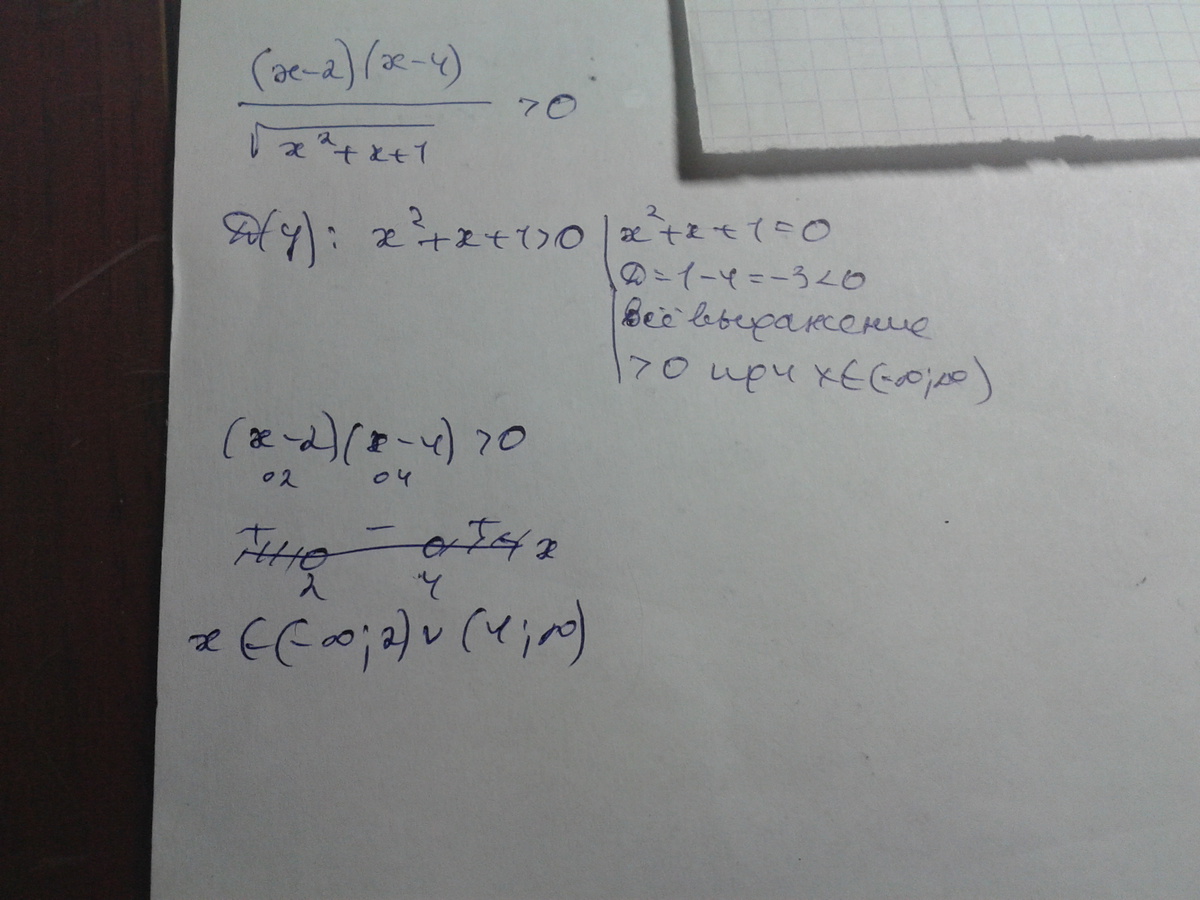 (x-2)(x-4)
√x²+x+1
>0
D(y): x²+x+1>0
x²+x+1=0
D=1-4=-3<0
всё выражение
>0 при x∈(-∞;∞)
(x-2)(x-4)>0
02 04
+ - + x
2 4
x∈(-∞;2)∪(4;∞)